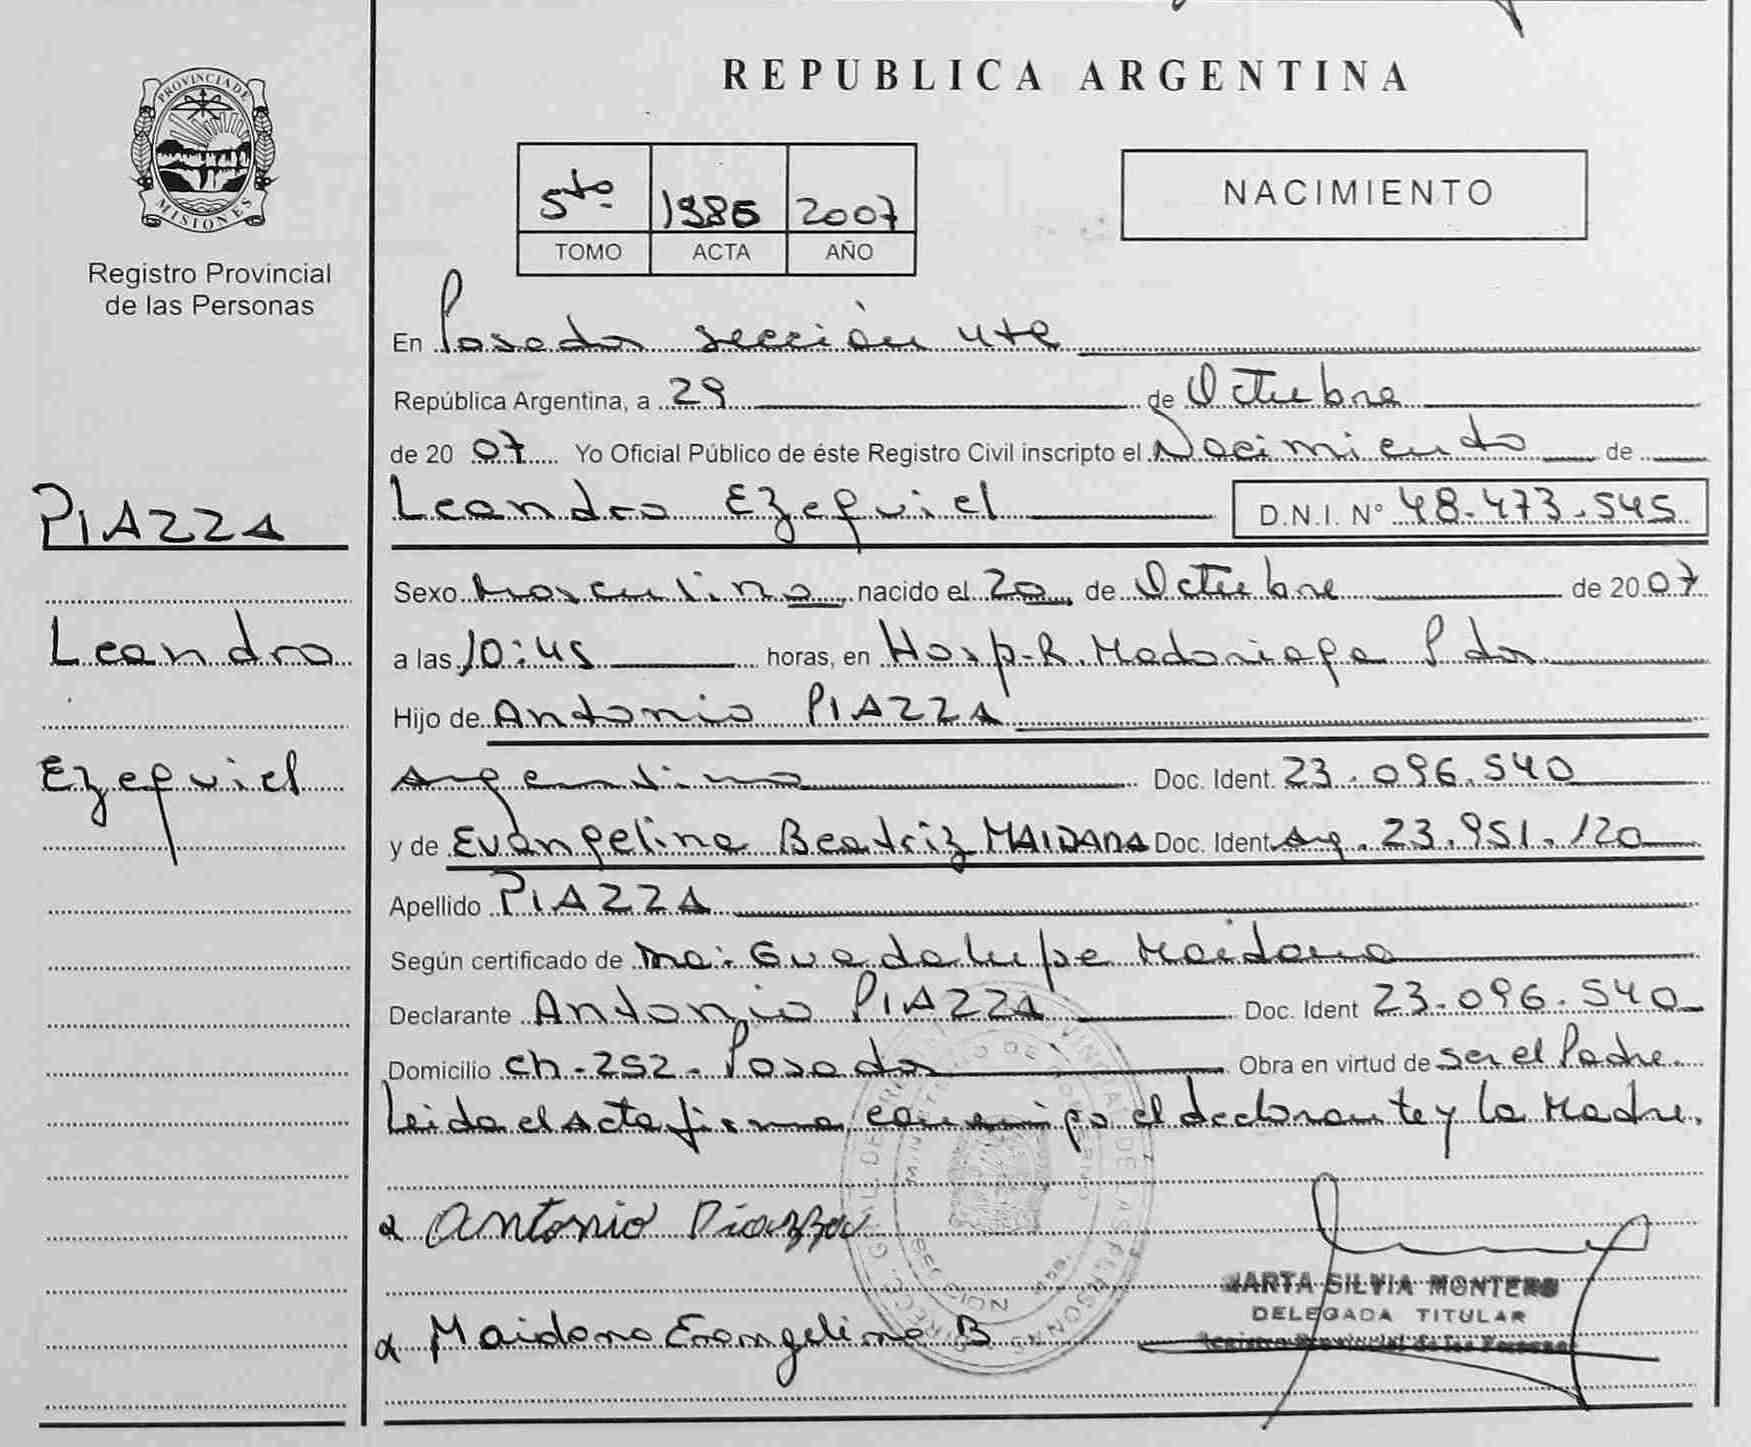 PROVINCIA DE
MISIONES
Registro Provincial
de las Personas
PIAZZA
Leandro
Ezequiel
REPUBLICA ARGENTINA
5to 1986 2007
TOMO ACTA AÑO
NACIMIENTO
En Posadas sección 4ta
República Argentina, a 29 de Octubre
de 2007 Yo Oficial Público de éste Registro Civil inscripto el Nacimiento de
Leandro Ezequiel D.N.I. N° 48.473.545
Sexo Masculino nacido el 20 de Octubre de 2007
a las 10:45 horas, en Hosp. R. Madariaga Pdas
Hijo de Antonio PIAZZA
Argentino Doc. Ident. 23.096.540
y de Evangelina Beatriz MAIDANA Doc. Ident Arg. 23.951.120
Apellido PIAZZA
Según certificado de Ma: Guadalupe Maidana
Declarante Antonio PIAZZA Doc. Ident 23.096.540
Domicilio Ch-252- Posadas Obra en virtud de ser el Padre.
Leida el Acta firma conmigo el declarante y la Madre.
Antonio Piazza
MARTA SILVIA MONTERO
DELEGADA TITULAR
Registro Provincial de las Personas
Maidana Evangelina B